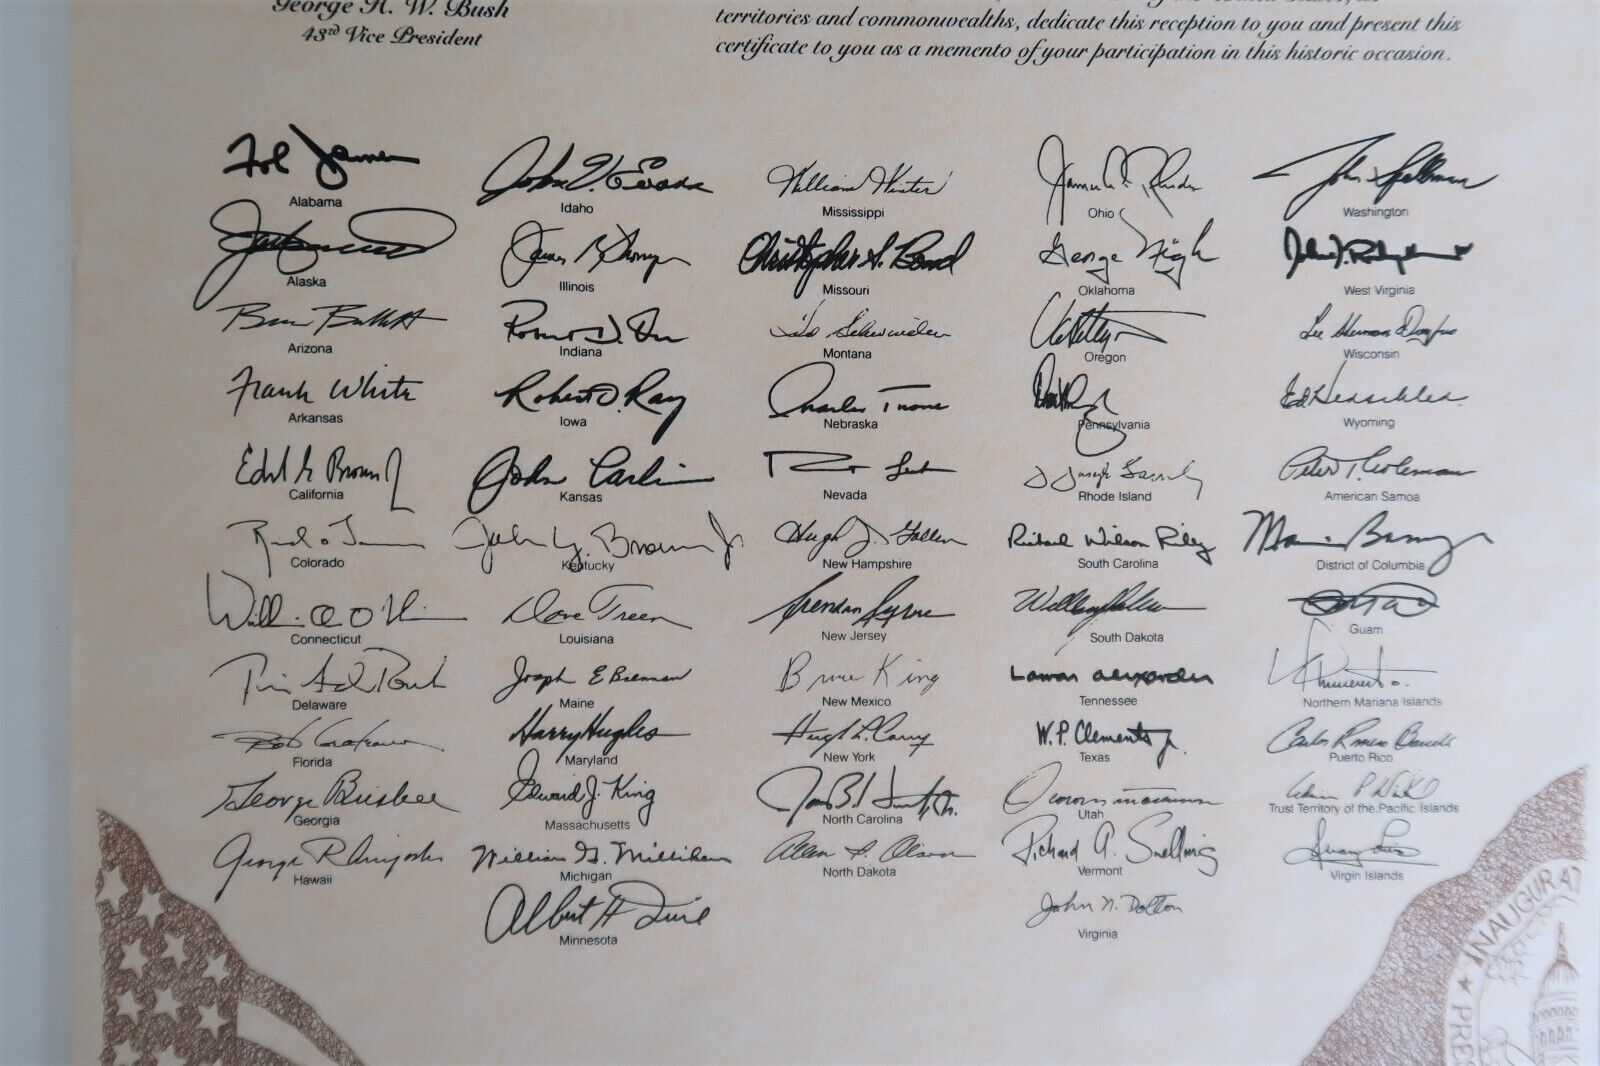 George H. W. Bush
43rd Vice President
territories and commonwealths, dedicate this reception to you and present this
certificate to you as a memento of your participation in this historic occasion.
Fob James
Alabama
Alaska
Bruce Babbitt
Arizona
Frank White
Arkansas
Edmund G Brown Jr
California
Colorado
William O'Neill
Connecticut
Delaware
Bob Graham
Florida
George Busbee
Georgia
George R Ariyoshi
Hawaii
John V. Evans
Idaho
James R Thompson
Illinois
Robert D. Orr
Indiana
Robert D. Ray
Iowa
John Carlin
Kansas
John Y. Brown Jr
Kentucky
Dave Treen
Louisiana
Joseph E Brennan
Maine
Harry Hughes
Maryland
Edward J. King
Massachusetts
William G. Milliken
Michigan
Albert H Quie
Minnesota
William Winter
Mississippi
Christopher S. Bond
Missouri
Ted Schwinden
Montana
Charles Thone
Nebraska
Nevada
Hugh J. Gallen
New Hampshire
Brendan Byrne
New Jersey
Bruce King
New Mexico
Hugh L. Carey
New York
James B. Hunt Jr.
North Carolina
Allen I. Olson
North Dakota
James A. Rhodes
Ohio
George Nigh
Oklahoma
Oregon
Pennsylvania
J Joseph Garrahy
Rhode Island
Richard Wilson Riley
South Carolina
South Dakota
Lamar Alexander
Tennessee
W. P. Clements Jr.
Texas
Utah
Richard A. Snelling
Vermont
John N. Dalton
Virginia
John Spellman
Washington
West Virginia
Lee Sherman Dreyfus
Wisconsin
Ed Herschler
Wyoming
Peter T. Coleman
American Samoa
Marion Barry Jr
District of Columbia
Guam
Northern Mariana Islands
Carlos Romero Barceló
Puerto Rico
Trust Territory of the Pacific Islands
Juan Luis
Virgin Islands
INAUGURAT
PRES